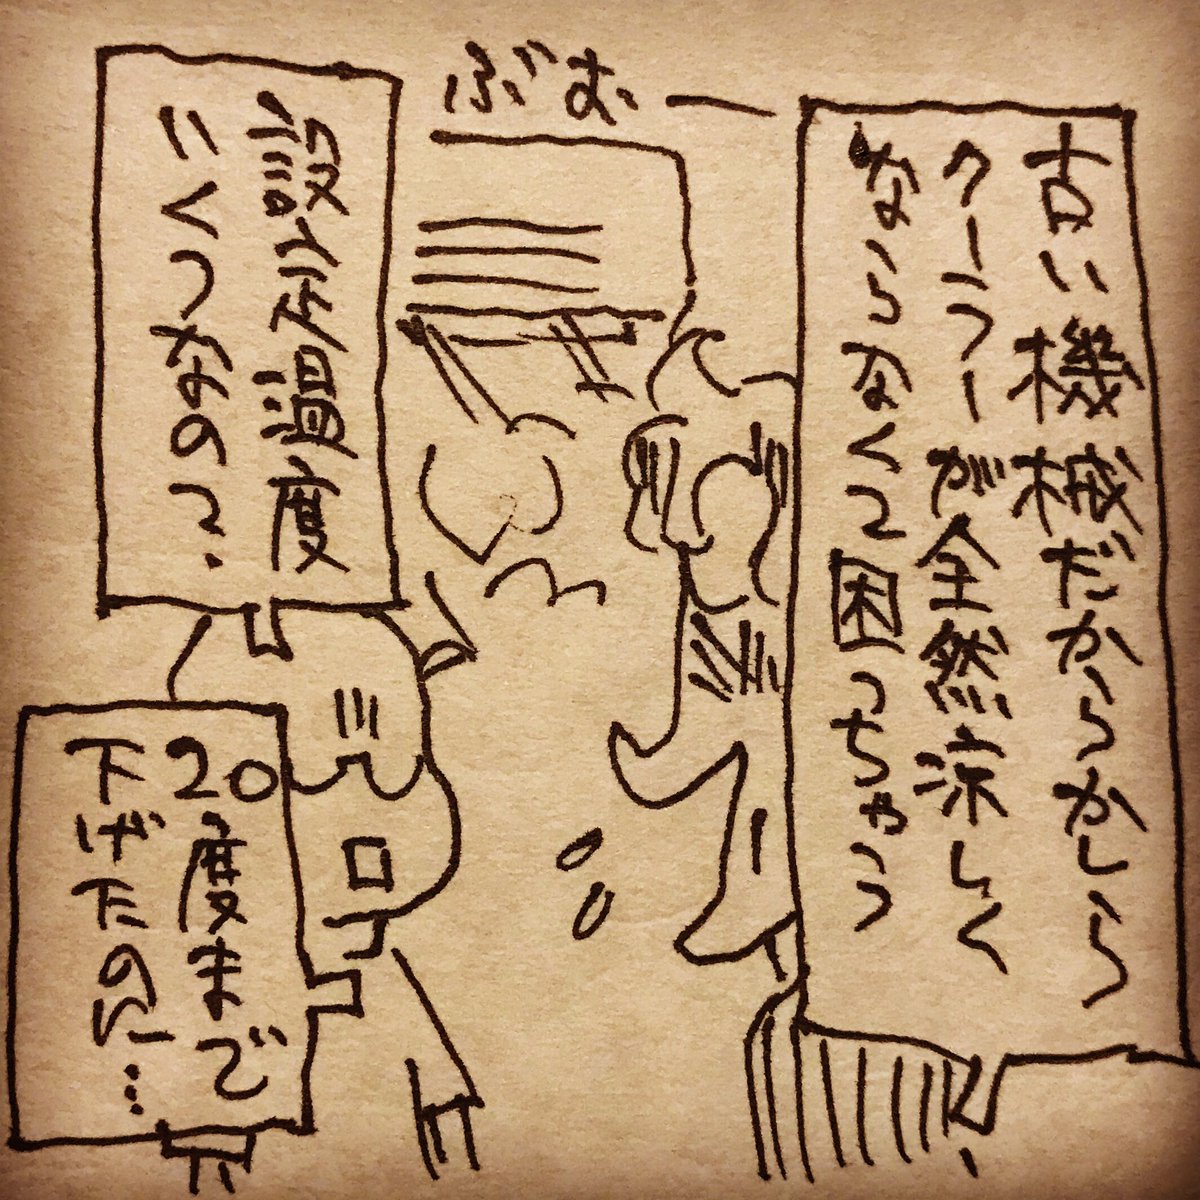 ぶおー
古い機械だからかしら
クーラーが全然涼しく
ならなくて困っちゃう
設定温度
いくつなの?
20度まで
下げたのに…